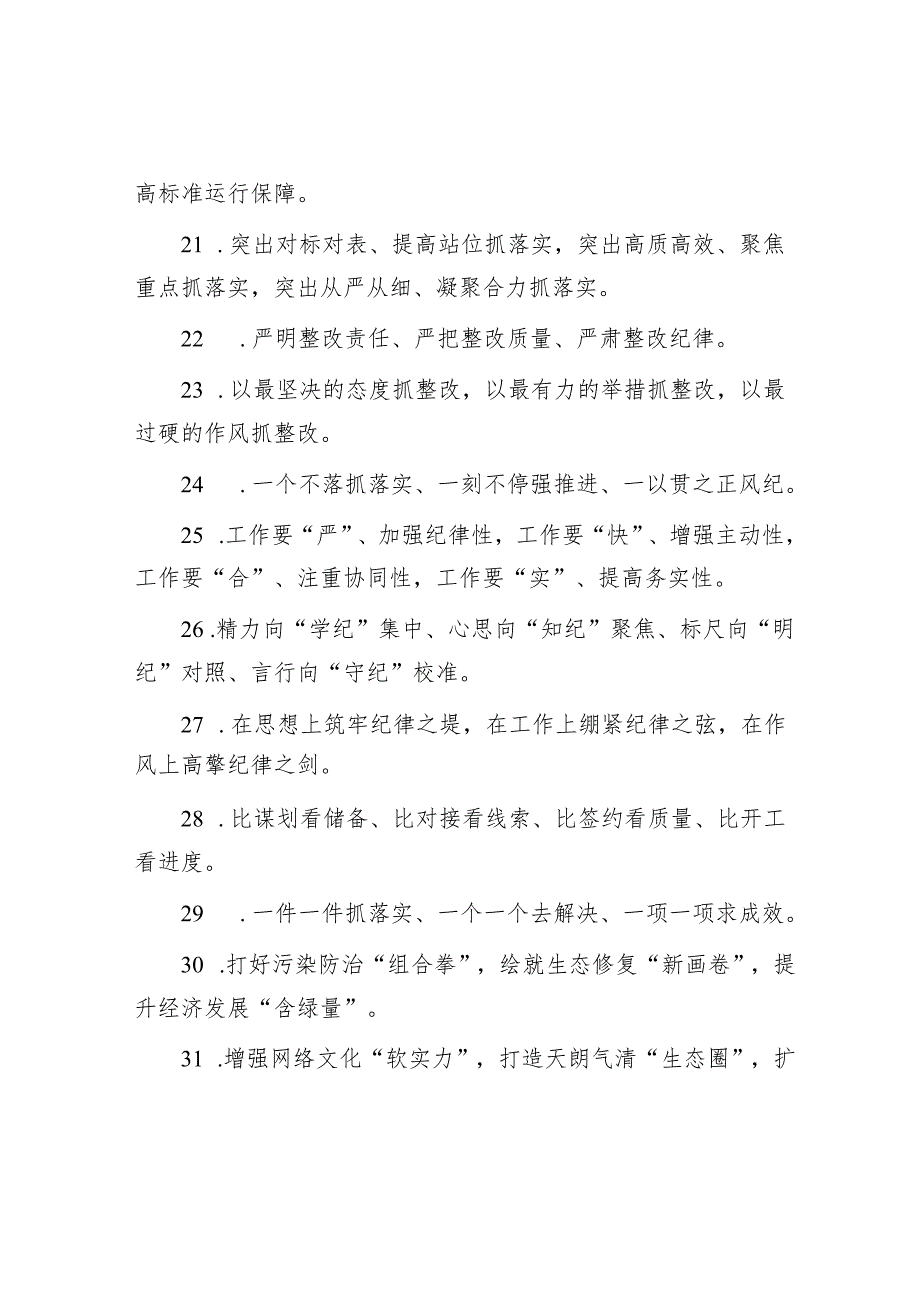 高标准运行保障。
21 .突出对标对表、提高站位抓落实，突出高质高效、聚焦
重点抓落实，突出从严从细、凝聚合力抓落实。
22 .严明整改责任、严把整改质量、严肃整改纪律。
23 .以最坚决的态度抓整改，以最有力的举措抓整改，以最
过硬的作风抓整改。
24 .一个不落抓落实、一刻不停强推进、一以贯之正风纪。
25 .工作要“严”、加强纪律性，工作要“快”、增强主动性，
工作要“合”、注重协同性，工作要“实”、提高务实性。
26 .精力向“学纪”集中、心思向“知纪”聚焦、标尺向“明
纪”对照、言行向“守纪”校准。
27 .在思想上筑牢纪律之堤，在工作上绷紧纪律之弦，在作
风上高擎纪律之剑。
28 .比谋划看储备、比对接看线索、比签约看质量、比开工
看进度。
29 .一件一件抓落实、一个一个去解决、一项一项求成效。
30 .打好污染防治“组合拳”，绘就生态修复“新画卷”，提
升经济发展“含绿量”。
31 .增强网络文化“软实力”，打造天朗气清“生态圈”，扩